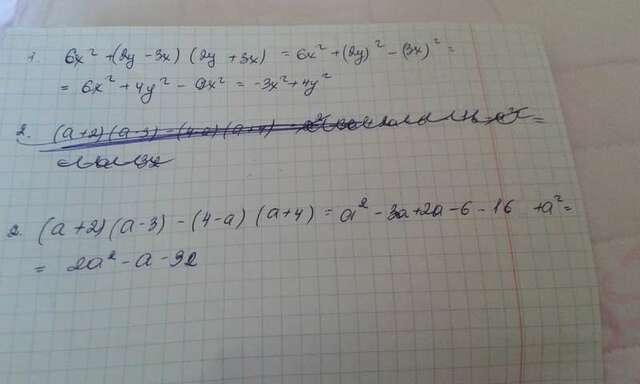 1. 6x² + (2y - 3x) (2y + 3x) = 6x² + (2y)² - (3x)² =
= 6x² + 4y² - 9x² = -3x² + 4y²
2. (a+2)(a-3) - (4-a)(a+4)
2. (a+2)(a-3) - (4-a)(a+4) = a² - 3a + 2a - 6 - 16 + a² =
= 2a² - a - 92